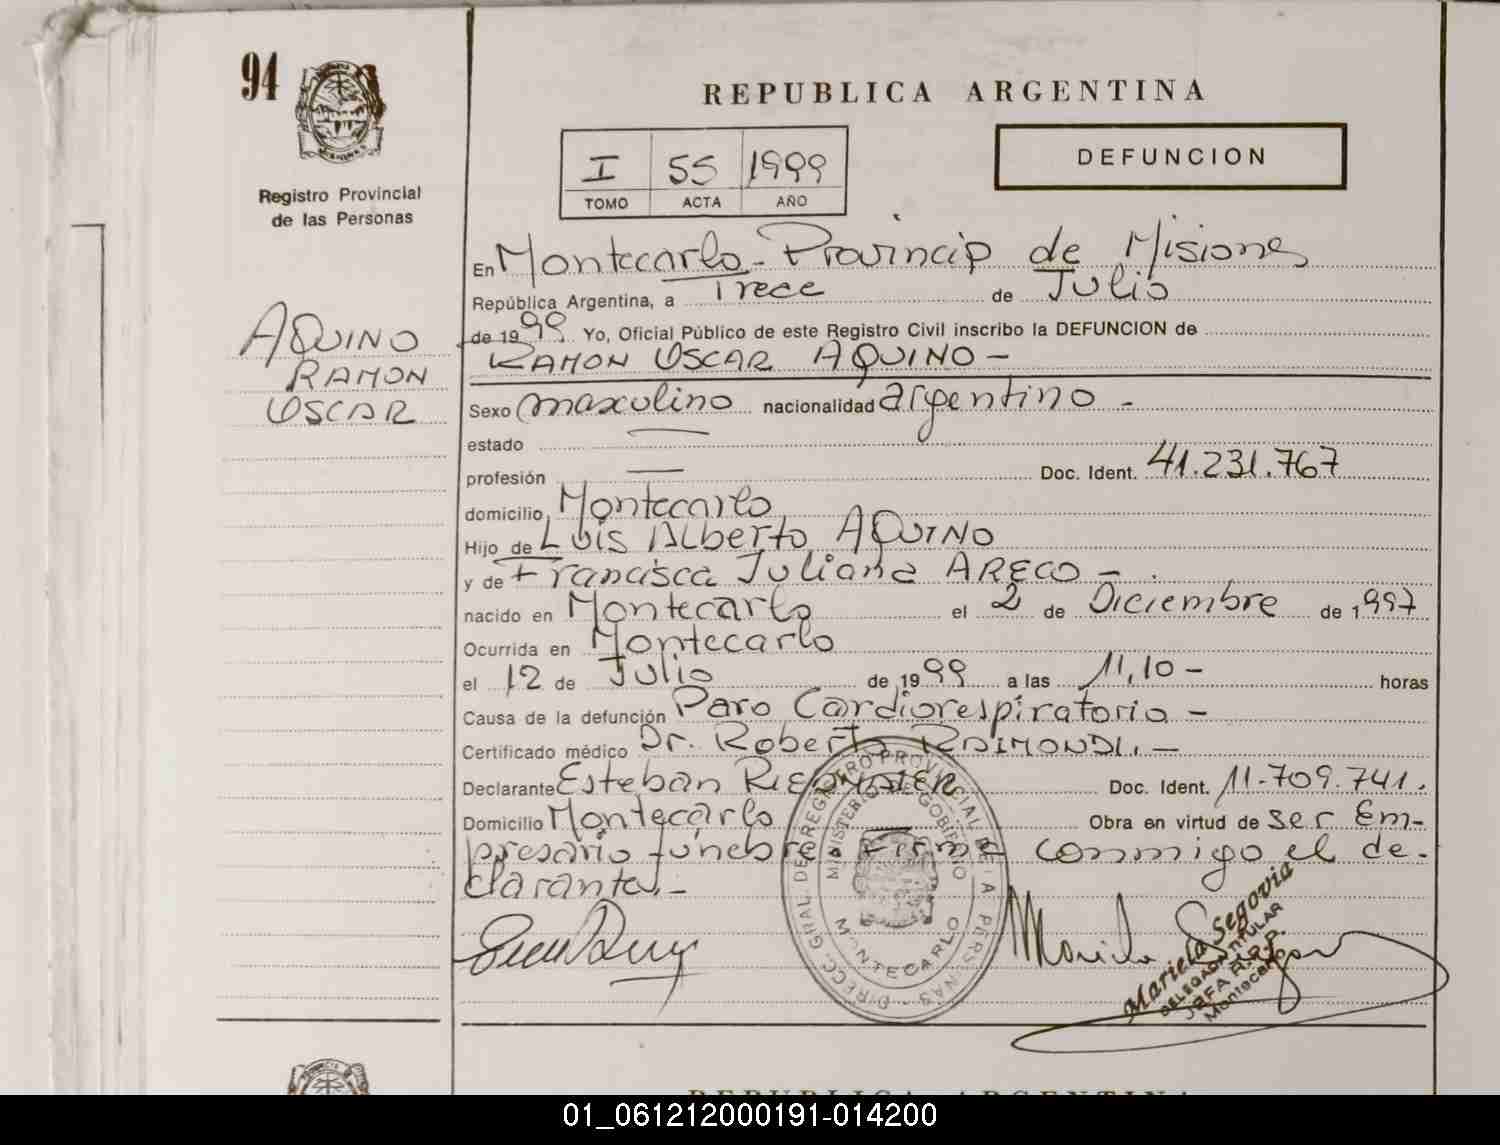 94
Registro Provincial
de las Personas
AQUINO
RAMON
OSCAR
REPUBLICA ARGENTINA
I 55 1999
TOMO ACTA AÑO
DEFUNCION
En Montecarlo - Provincia de Misiones
República Argentina, a Trece de Julio
de 1999. Yo, Oficial Público de este Registro Civil inscribo la DEFUNCION de
RAMON OSCAR AQUINO -
Sexo masculino nacionalidad argentino -
estado —
profesión — Doc. Ident. 41.231.767
domicilio Montecarlo
Hijo de Luis Alberto AQUINO
y de Francisca Juliana ARECO - .
nacido en Montecarlo el 2 de Diciembre de 1997
Ocurrida en Montecarlo
el 12 de Julio de 1999 a las 11,10 - horas
Causa de la defunción Paro Cardiorespiratorio -
Certificado médico Dr. Roberto RAIMONDI. -
Declarante Esteban Doc. Ident. 11.709.741.
Domicilio Montecarlo Obra en virtud de ser Em-
presario fúnebre Firma conmigo el de-
clarante. -
DIRECC. GRAL. DE REGISTRO PROVINCIAL DE LA PERSONAS
MINISTERIO DE GOBIERNO
MONTECARLO
Mariela Segovia
DELEGADA TITULAR
JEFA R.P.P.
Montecarlo
REPUBLICA ARGENTINA
01_061212000191-014200